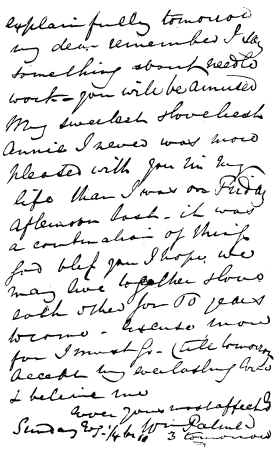 explain fully tomorrow
my dear - remember I say
something about needle
work - you will be amused
My sweetest loveliest
Annie I never was more
pleased with you in my
life than I was on Friday
afternoon last - it was
a combination of things
God bless you I hope we
may live together & love
each other for 60 years
to come - excuse more
for I must go - (till tomorrow)
accept my everlasting love
& believe me
ever yours most affectly
Sunday Wm Palmer
3 tomorrow